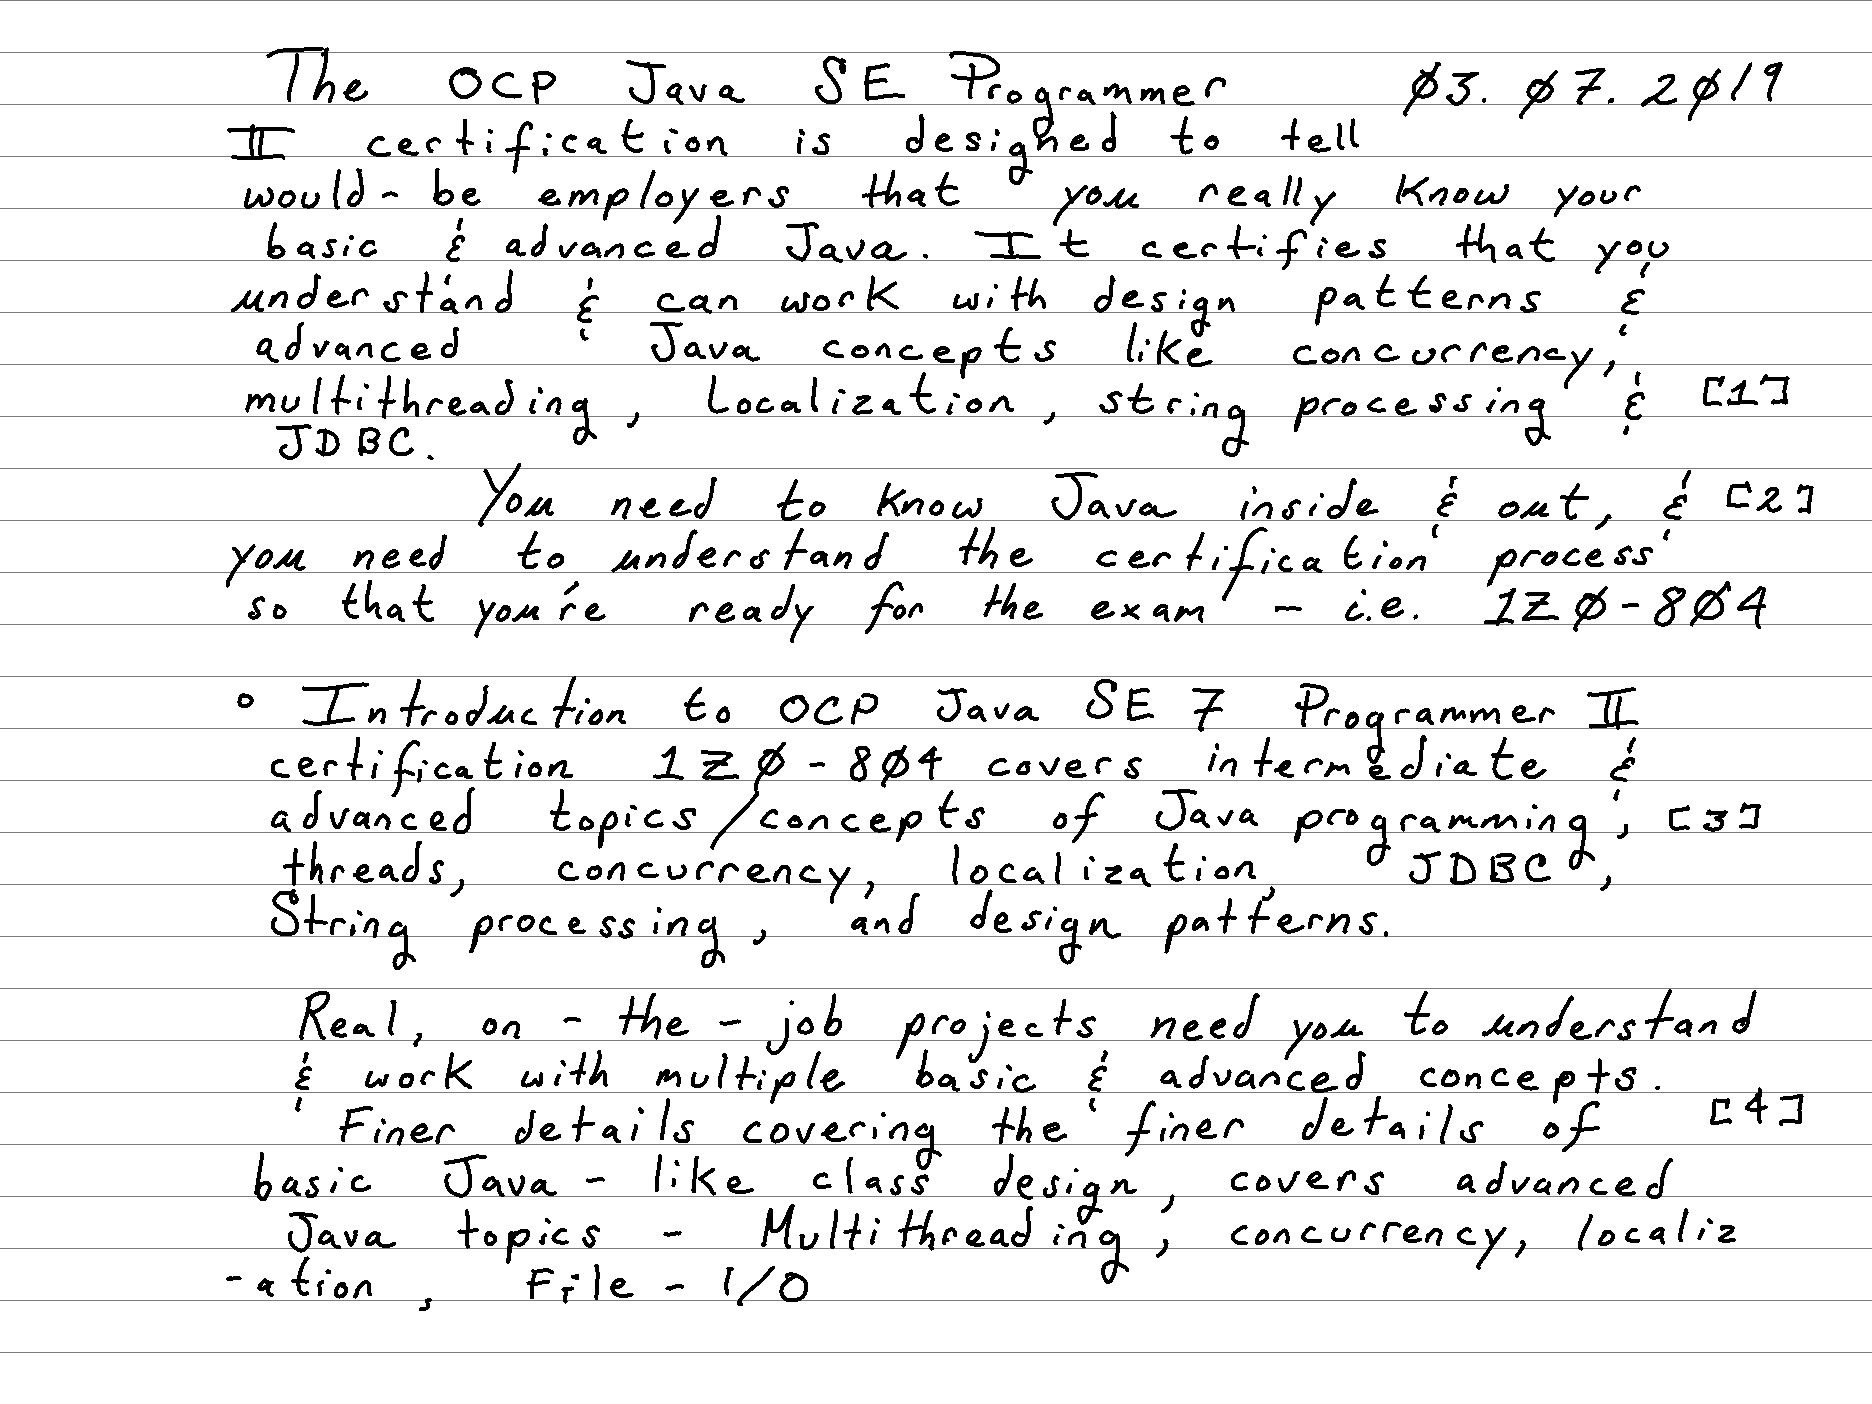 The OCP Java SE Programmer Ø3. Ø7. 2Ø19
II certification is designed to tell
would-be employers that you really know your
basic & advanced Java. It certifies that you
understand & can work with design patterns &
advanced Java concepts like concurrency,
multithreading, Localization, string processing & [1]
JDBC.
You need to know Java inside & out, & [2]
you need to understand the certification process
so that you're ready for the exam - i.e. 1ZØ-8Ø4
° Introduction to OCP Java SE 7 Programmer II
certification 1ZØ-8Ø4 covers intermediate &
advanced topics/concepts of Java programming, [3]
threads, concurrency, localization, JDBC,
String processing, and design patterns.
Real, on-the-job projects need you to understand
& work with multiple basic & advanced concepts.
Finer details covering the finer details of [4]
basic Java - like class design, covers advanced
Java topics - Multithreading, concurrency, localiz
-ation, File-I/O